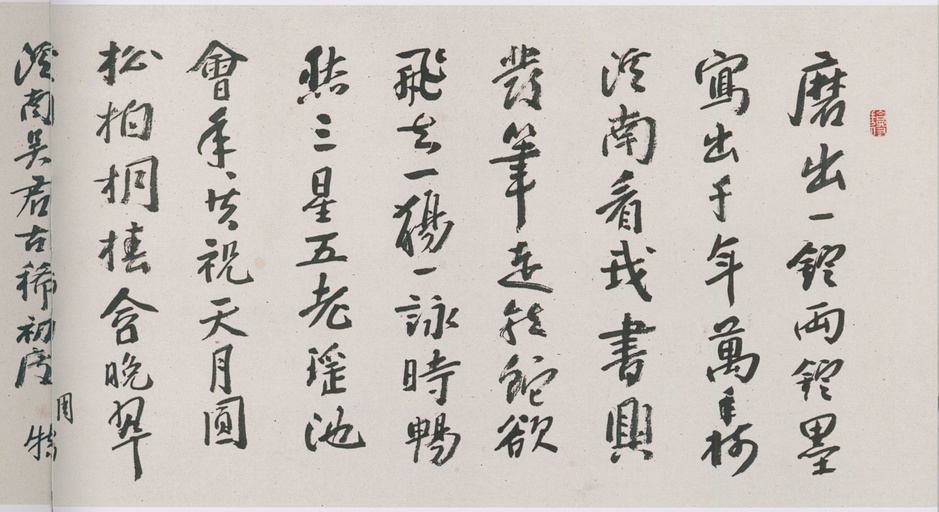 磨出一錠兩錠墨
寫出千年萬年樹
溪南看我書興
發筆走龍蛇欲
飛去一觴一詠時暢
然三星五老瑤池
會年〻共祝天月圓
松柏桐椿含晚翠
溪南吳君古稀初度用特